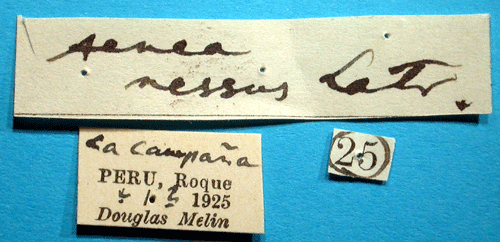 aenea
nessus Latr.
La Campaña
PERU, Roque
1925
Douglas Melin
25